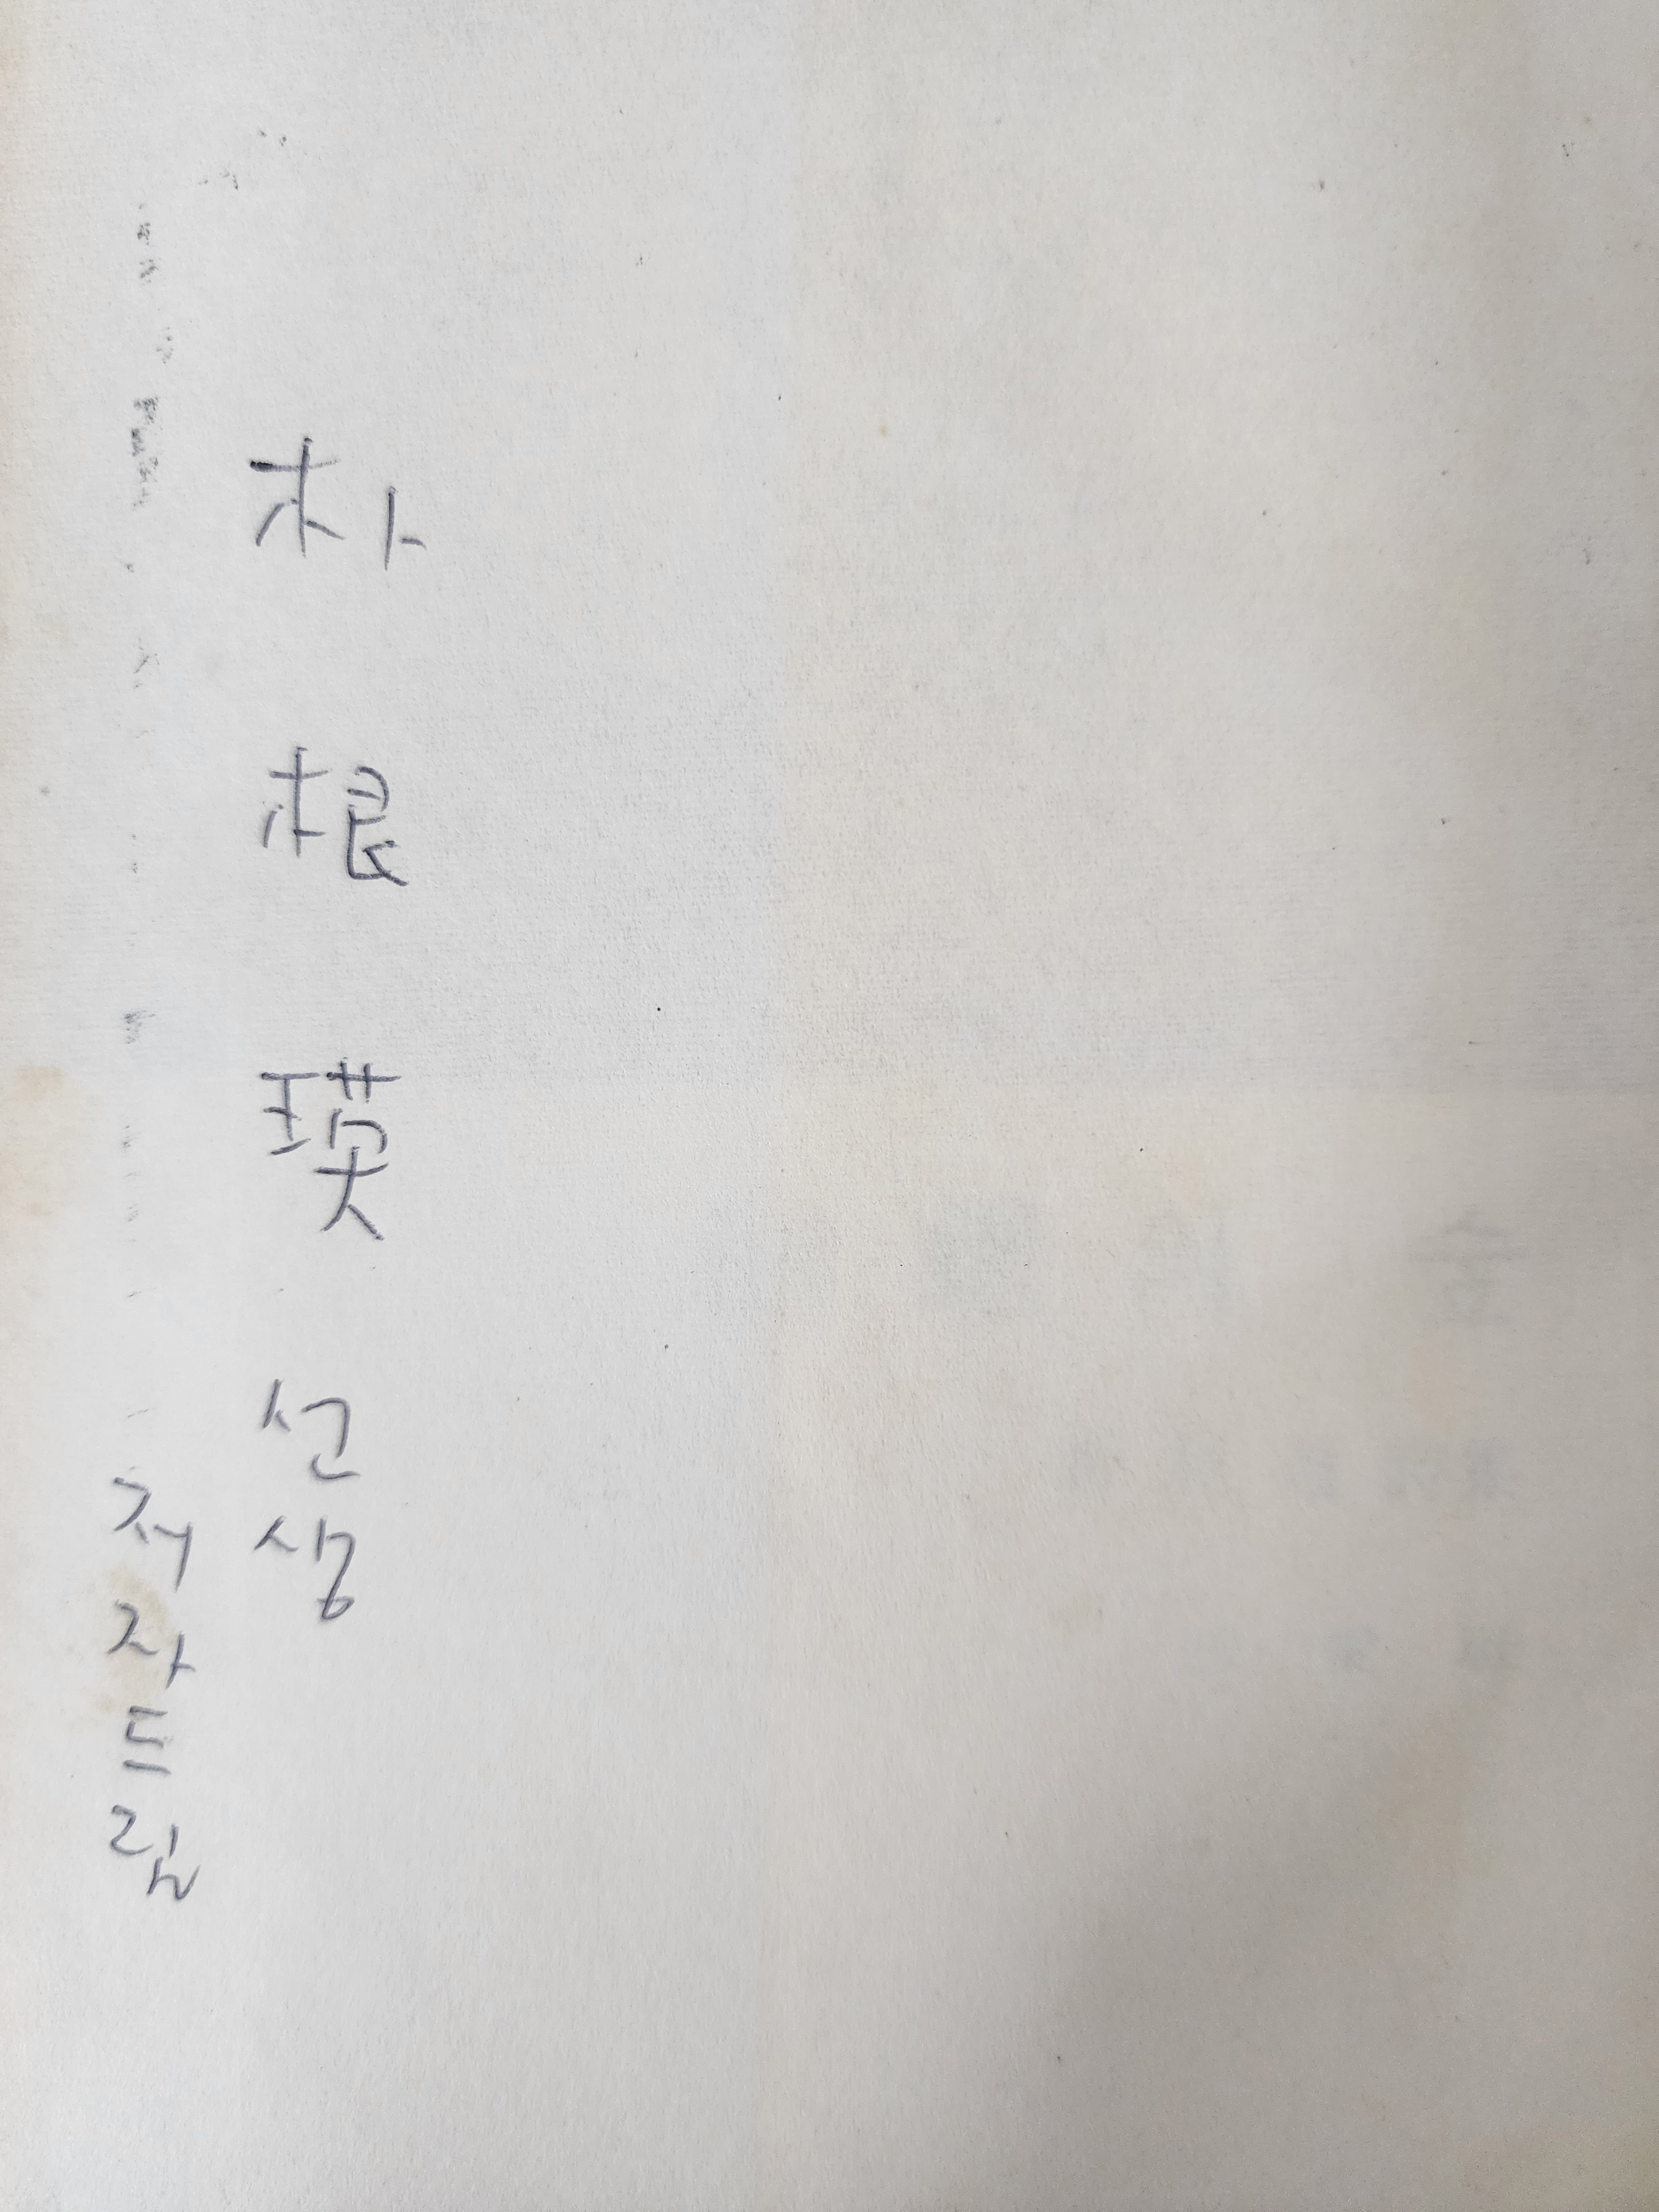 朴根瑛 선생
저자드림